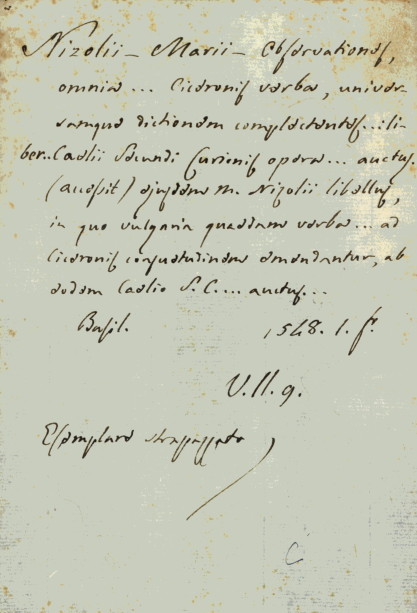 Nizolii - Marii - Observationes,
omnia ... Ciceronis verba, univer-
samque dictionem complectentes... li-
ber.. Caelii Secundi Curionis opera... auctus.
(accessit) ejusdem M. Nizolii libellus,
in quo vulgaria quaedam verba... ad
Ciceronis consuetudinem emendantur, ab
eodem Caelio S. C.... auctus...
Basil. 1548. 1. fo.
V. ll. 9.
Esemplare strappazzato
C